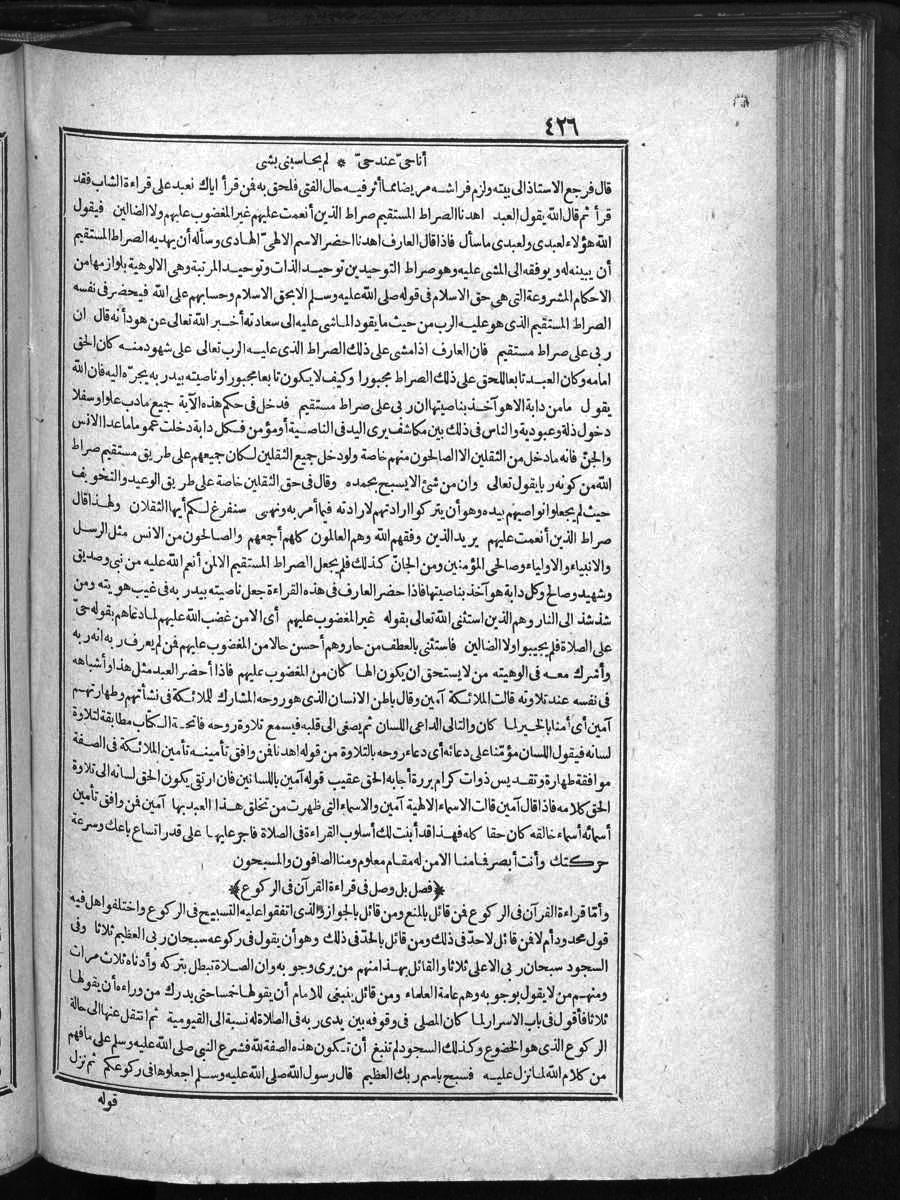 ٤٢٦
أنا حيّ عند حيّ * لم يحاسبني بشي
قال فرجع الاستاذ الى بيته ولزم فراشه مريضا مما أثر فيه حال الفتى فلحق به فمن قرأ اياك نعبد على قراءة الشاب فقد
قرأ ثم قال الله يقول العبد اهدنا الصراط المستقيم صراط الذين أنعمت عليهم غير المغضوب عليهم ولا الضالين فيقول
الله هؤلاء لعبدي ولعبدي ما سأل فاذا قال العارف اهدنا احضر الاسم الالهيّ الهادى وسأله أن يهديه الصراط المستقيم
أن يبينه له ويوفقه الى المشى عليه وهو صراط التوحيدين توحيد الذات وتوحيد المرتبة وهى الالوهية بلوازمها من
الاحكام المشروعة التى هى حق الاسلام فى قوله صلى الله عليه وسلم الا بحق الاسلام وحسابهم على الله فيحضر فى نفسه
الصراط المستقيم الذى هو عليه الرب من حيث ما يقود الماشى عليه الى سعادته أخبر الله تعالى عن هود أنه قال ان
ربى على صراط مستقيم فان العارف اذا مشى على ذلك الصراط الذى عليه الرب تعالى على شهود منه كان الحق
امامه وكان العبد تابعا للحق على ذلك الصراط مجبورا وكيف لا يكون تابعا مجبورا وناصيته بيد ربه يجرّه اليه فان الله
يقول ما من دابة الا هو آخذ بناصيتها ان ربى على صراط مستقيم فدخل فى حكم هذه الآية جميع ما دب علوا وسفلا
دخول ذلة وعبودية والناس فى ذلك بين مكاشف يرى اليد فى الناصية أو مؤمن فكل دابة دخلت عموما ما عدا الانس
والجنّ فانه ما دخل من الثقلين الا الصالحون منهم خاصة ولو دخل جميع الثقلين لكان جميعهم على طريق مستقيم صراط
الله من كونه ربا يقول تعالى وان من شئ الا يسبح بحمده وقال فى حق الثقلين خاصة على طريق الوعيد والتخويف
حيث لم يجعلوا نواصيهم بيده وهو أن يتركوا ارادتهم لارادته فيما أمر به ونهى سنفرغ لكم أيها الثقلان ولهذا قال
صراط الذين أنعمت عليهم يريد الذين وفقهم الله وهم العالمون كلهم أجمعهم والصالحون من الانس مثل الرسل
والانبياء والاولياء وصالحى المؤمنين ومن الجانّ كذلك فلم يجعل الصراط المستقيم الا لمن أنعم الله عليه من نبى وصديق
وشهيد وصالح وكل دابة هو آخذ بناصيتها فاذا حضر العارف فى هذه القراءة جعل ناصيته بيد ربه فى غيب هويته ومن
شذ شذ الى النار وهم الذين استثنى الله تعالى بقوله غير المغضوب عليهم أى الا من غضب الله عليهم لما دعاهم بقوله حىّ
على الصلاة فلم يجيبوا ولا الضالين فاستثنى بالعطف من حار وهم أحسن حالا من المغضوب عليهم فمن لم يعرف ربه انه ربه
وأشرك معه فى الوهيته من لا يستحق ان يكون الها كان من المغضوب عليهم فاذا أحضر العبد مثل هذا وأشباهه
فى نفسه عند تلاوته قالت الملائكة آمين وقال باطن الانسان الذى هو روحه المشارك للملائكة فى نشأتهم وطهارتهم
آمين أى أمنا بالخير لما كان والتالى الداعى اللسان ثم يصغى الى قلبه فيسمع تلاوة روحه فاتحة الكتاب مطابقة لتلاوة
لسانه فيقول اللسان مؤمّنا على دعائه أى دعاء روحه بالتلاوة من قوله اهدنا فمن وافق تأمينه تأمين الملائكة فى الصفة
موافقة طهارة وتقديس ذوات كرام بررة أجابه الحق عقيب قوله آمين باللسانين فان ارتقى يكون الحق لسانه الى تلاوة
الحق كلامه فاذا قال آمين قالت الاسماء الالهية آمين والاسماء التى ظهرت من تخلق هذا العبد بها آمين فمن وافق تأمين
أسمائه أسماء خالقه كان حقا كله فهذا قد أبنت لك أسلوب القراءة فى الصلاة فاجر عليها على قدر اتساع باعك وسرعة
حركتك وأنت أبصر فما منا الا من له مقام معلوم ومنا الصافون والمسبحون
﴿فصل بل وصل فى قراءة القرآن فى الركوع﴾
وأمّا قراءة القرآن فى الركوع فمن قائل بالمنع ومن قائل بالجواز والذى اتفقوا عليه التسبيح فى الركوع واختلفوا هل فيه
قول محدود أم لا فمن قائل لا حدّ فى ذلك ومن قائل بالحدّ فى ذلك وهو أن يقول فى ركوعه سبحان ربى العظيم ثلاثا وفى
السجود سبحان ربى الاعلى ثلاثا والقائل بهذا منهم من يرى وجوبه وان الصلاة تبطل بتركه وأدناه ثلاث مرات
ومنهم من لا يقول بوجوبه وهم عامة العلماء ومن قائل ينبغى للامام أن يقولها خمسا حتى يدرك من وراءه أن يقولها
ثلاثا فأقول فى باب الاسرار لما كان المصلى فى وقوفه بين يدى ربه فى الصلاة له نسبة الى القيومية ثم انتقل عنها الى حالة
الركوع الذى هو الخضوع وكذلك السجود لم تنبغ أن تكون هذه الصفة لله فشرع النبى صلى الله عليه وسلم على ما فهم
من كلام الله لما نزل عليه فسبح باسم ربك العظيم قال رسول الله صلى الله عليه وسلم اجعلوها فى ركوعكم ثم نزل
قوله